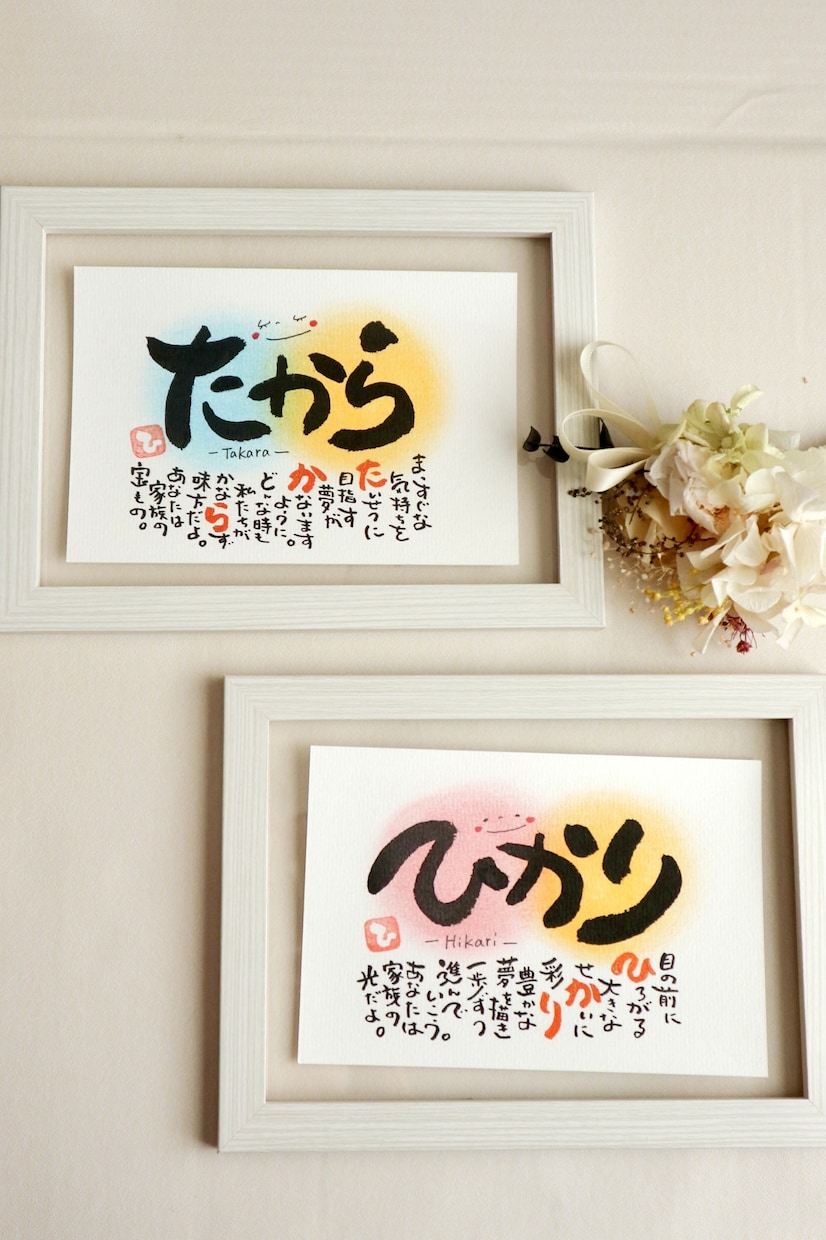 たから
ひ
- Takara -
まっすぐな
気持ちを
たいせつに
目指す
夢が
かないます
ように。
どんな時も
私たちが
かならず
味方だよ。
あなたは
家族の
宝もの。
ひかり
ひ
- Hikari -
目の前に
ひろがる
大きな
せかいに
彩り
豊かな
夢を描き
一歩ずつ
進んで
いこう。
あなたは
家族の
光だよ。